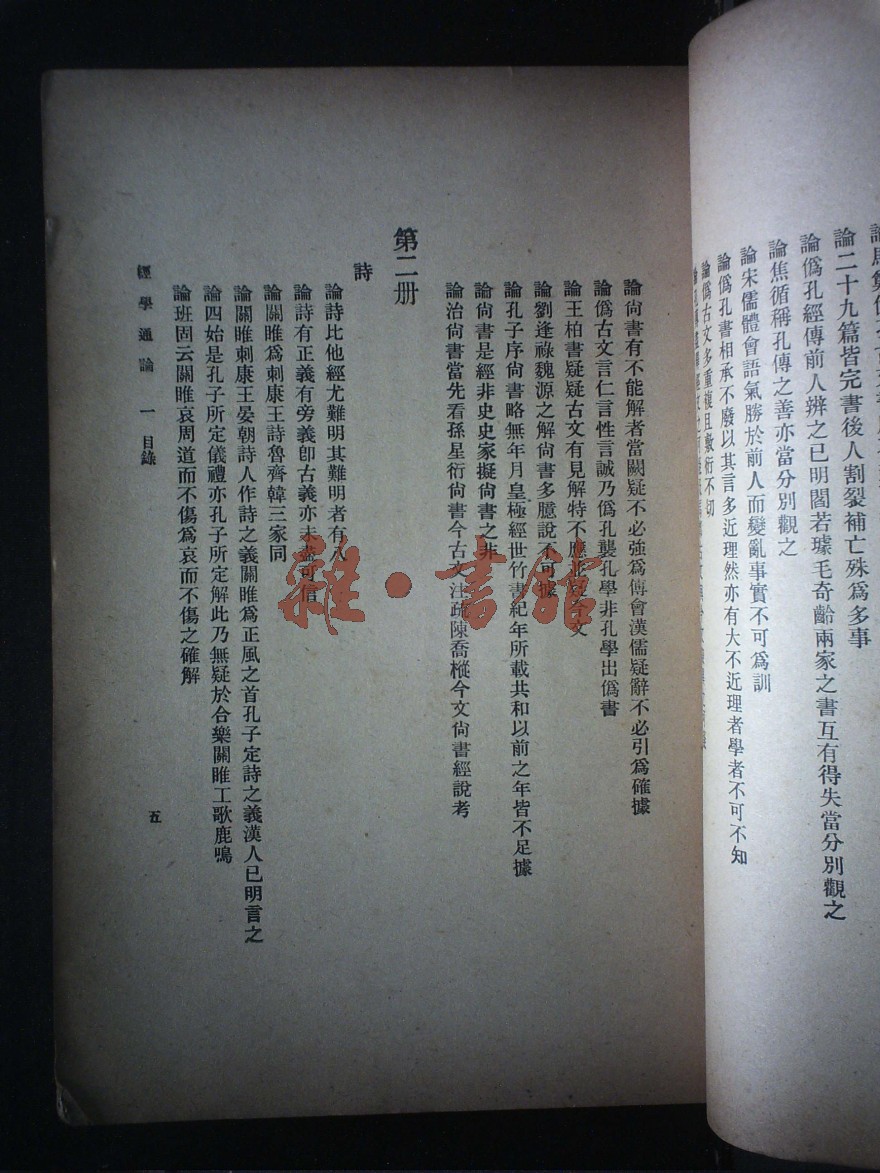 論二十九篇皆完書後人割裂補亡殊爲多事
論僞孔經傳前人辨之已明閻若璩毛奇齡兩家之書互有得失當分別觀之
論焦循稱孔傳之善亦當分別觀之
論宋儒體會語氣勝於前人而變亂事實不可爲訓
論僞孔書相承不廢以其言多近理然亦有大不近理者學者不可不知
論僞古文多重複且敷衍不切
論尙書有不能解者當闕疑不必強爲傅會漢儒疑辭不必引爲確據
論僞古文言仁言性言誠乃僞孔襲孔學非孔學出僞書
論王柏書疑疑古文有見解特不應並疑今文
論劉逢祿魏源之解尙書多臆說不可據
論孔子序尙書略無年月皇極經世竹書紀年所載共和以前之年皆不足據
論尙書是經非史史家擬尙書之非
論治尙書當先看孫星衍尙書今古文注疏陳喬樅今文尙書經說考
第二册
詩
論詩比他經尤難明其難明者有八
論詩有正義有旁義卽古義亦未盡可信
論關雎爲刺康王詩魯齊韓三家同
論關雎刺康王晏朝詩人作詩之義關雎爲正風之首孔子定詩之義漢人已明言之
論四始是孔子所定儀禮亦孔子所定解此乃無疑於合樂關雎工歌鹿鳴
論班固云關雎哀周道而不傷爲哀而不傷之確解
經學通論 一 目錄
五
雜·書館